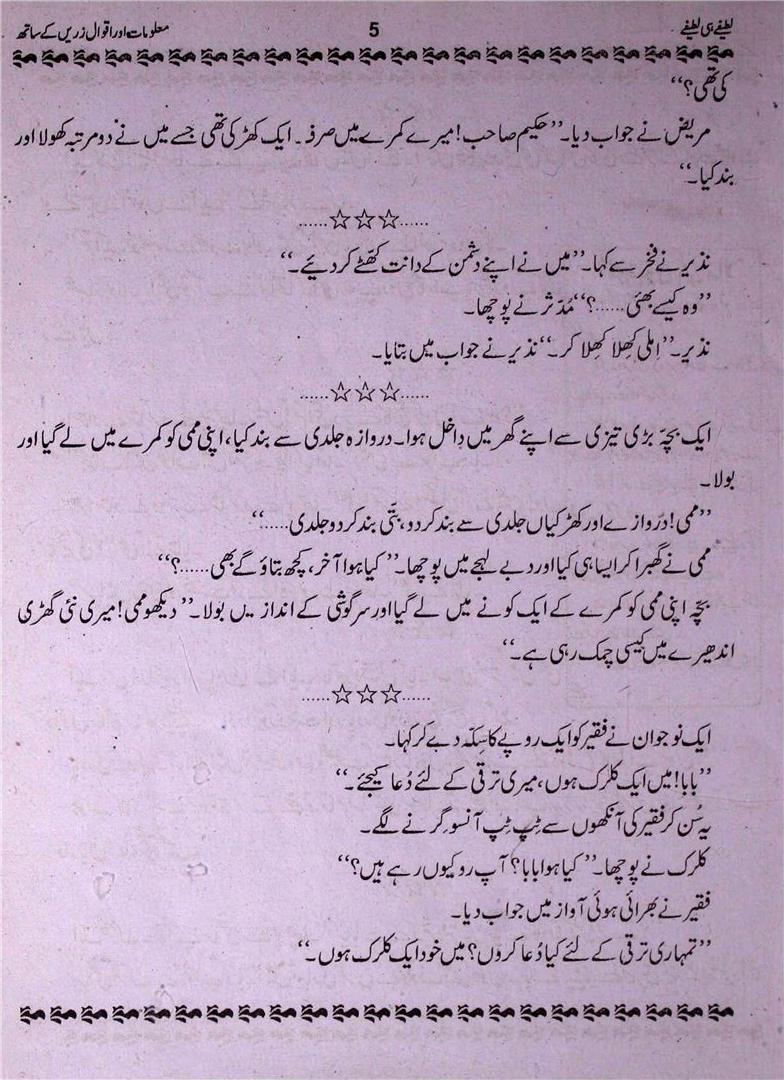 لطیفے ہی لطیفے 5 معلومات اور اقوال زریں کے ساتھ
کی تھی؟‘‘
مریض نے جواب دیا۔ ’’حکیم صاحب! میرے کمرے میں صرف۔ ایک کھڑکی تھی جسے میں نے دو مرتبہ کھولا اور
بند کیا۔‘‘
......☆☆☆......
نذیر نے فخر سے کہا۔ ’’میں نے اپنے دشمن کے دانت کھٹے کر دیئے۔‘‘
’’وہ کیسے بھئی......؟‘‘ مُدثر نے پوچھا۔
نذیر۔ ’’اِملی کھِلا کھِلا کر۔‘‘ نذیر نے جواب میں بتایا۔
......☆☆☆......
ایک بچہّ بڑی تیزی سے اپنے گھر میں داخل ہوا۔ دروازہ جلدی سے بند کیا، اپنی ممی کو کمرے میں لے گیا اور
بولا۔
’’ممی! دروازے اور کھڑکیاں جلدی سے بند کر دو، بتّی بند کر دو جلدی......‘‘
ممی نے گھبرا کر ایسا ہی کیا اور دبے لہجے میں پوچھا۔ ’’کیا ہوا آخر، کچھ بتاؤ گے بھی......؟‘‘
بچہّ اپنی ممی کو کمرے کے ایک کونے میں لے گیا اور سرگوشی کے انداز یں بولا۔ ’’دیکھو ممی! میری نئی گھڑی
اندھیرے میں کیسی چمک رہی ہے۔‘‘
......☆☆☆......
ایک نوجوان نے فقیر کو ایک روپے کا سِکہّ دے کر کہا۔
’’بابا! میں ایک کلرک ہوں، میری ترقی کے لئے دُعا کیجئے۔‘‘
یہ سُن کر فقیر کی آنکھوں سے ٹِپ ٹِپ آنسو گرنے لگے۔
کلرک نے پوچھا۔ ’’کیا ہوا بابا؟ آپ رو کیوں رہے ہیں؟‘‘
فقیر نے بھرائی ہوئی آواز میں جواب دیا۔
’’تمہاری ترقی کے لئے کیا دُعا کروں؟ میں خود ایک کلرک ہوں۔‘‘